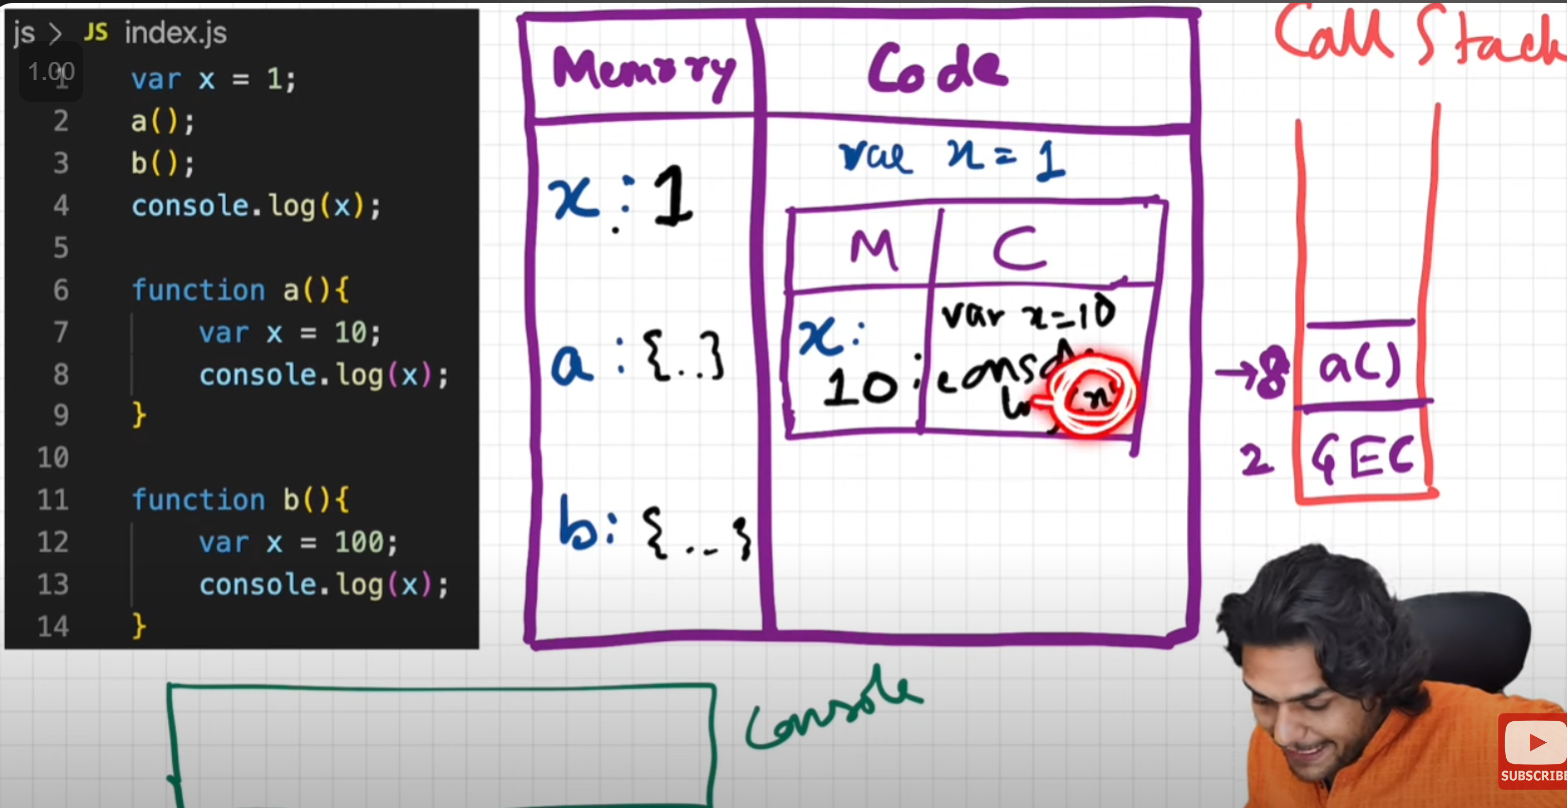 js > JS index.js
1.00
1 var x = 1;
2 a();
3 b();
4 console.log(x);
5
6 function a(){
7 var x = 10;
8 console.log(x);
9 }
10
11 function b(){
12 var x = 100;
13 console.log(x);
14 }
Memory Code
x : 1
a : {..}
b : {...}
var x = 1
M C
x :
10
var x = 10
console.
log(x)
Call Stack
→8 a()
2 GEC
Console
SUBSCRIBE